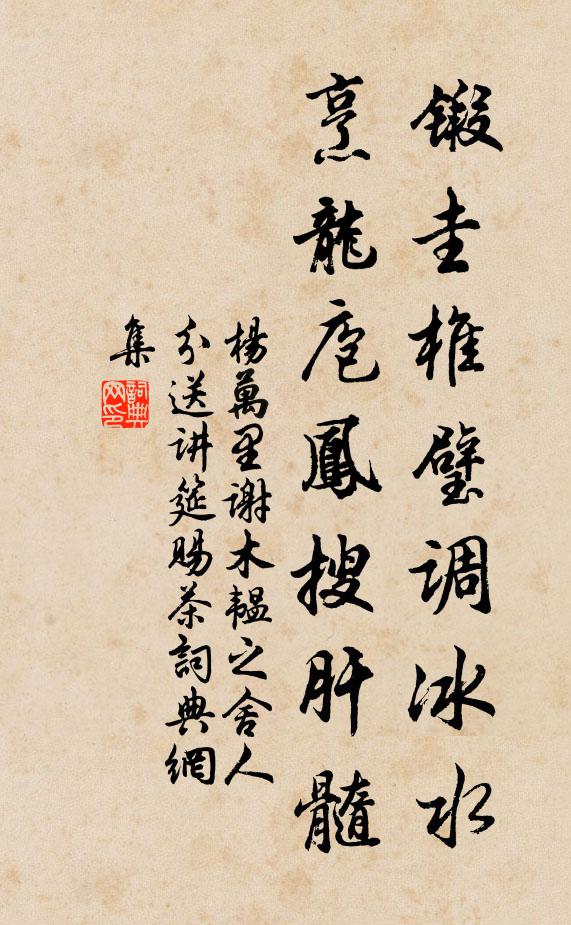 鍛圭椎璧調冰水
烹龍庖鳳搜肝髓
楊萬里謝木韞之舍人
分送讲筵賜茶詞典網
集
詞典
网印